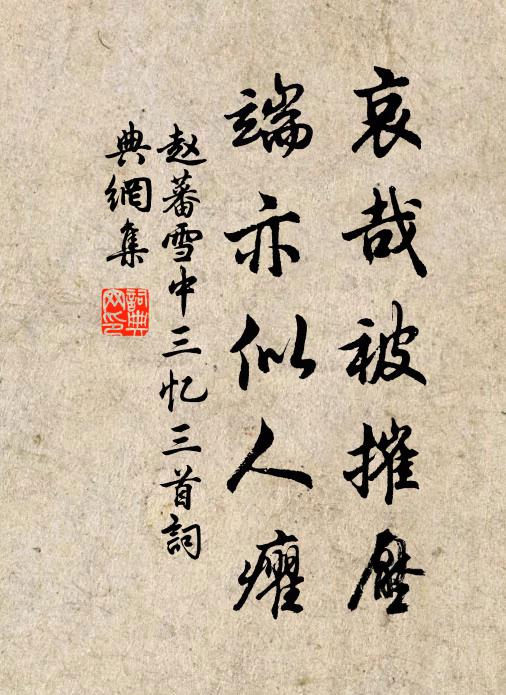 哀哉被摧壓
端亦似人癯
赵蕃雪中三忆三首詞
典網集
詞典
网印